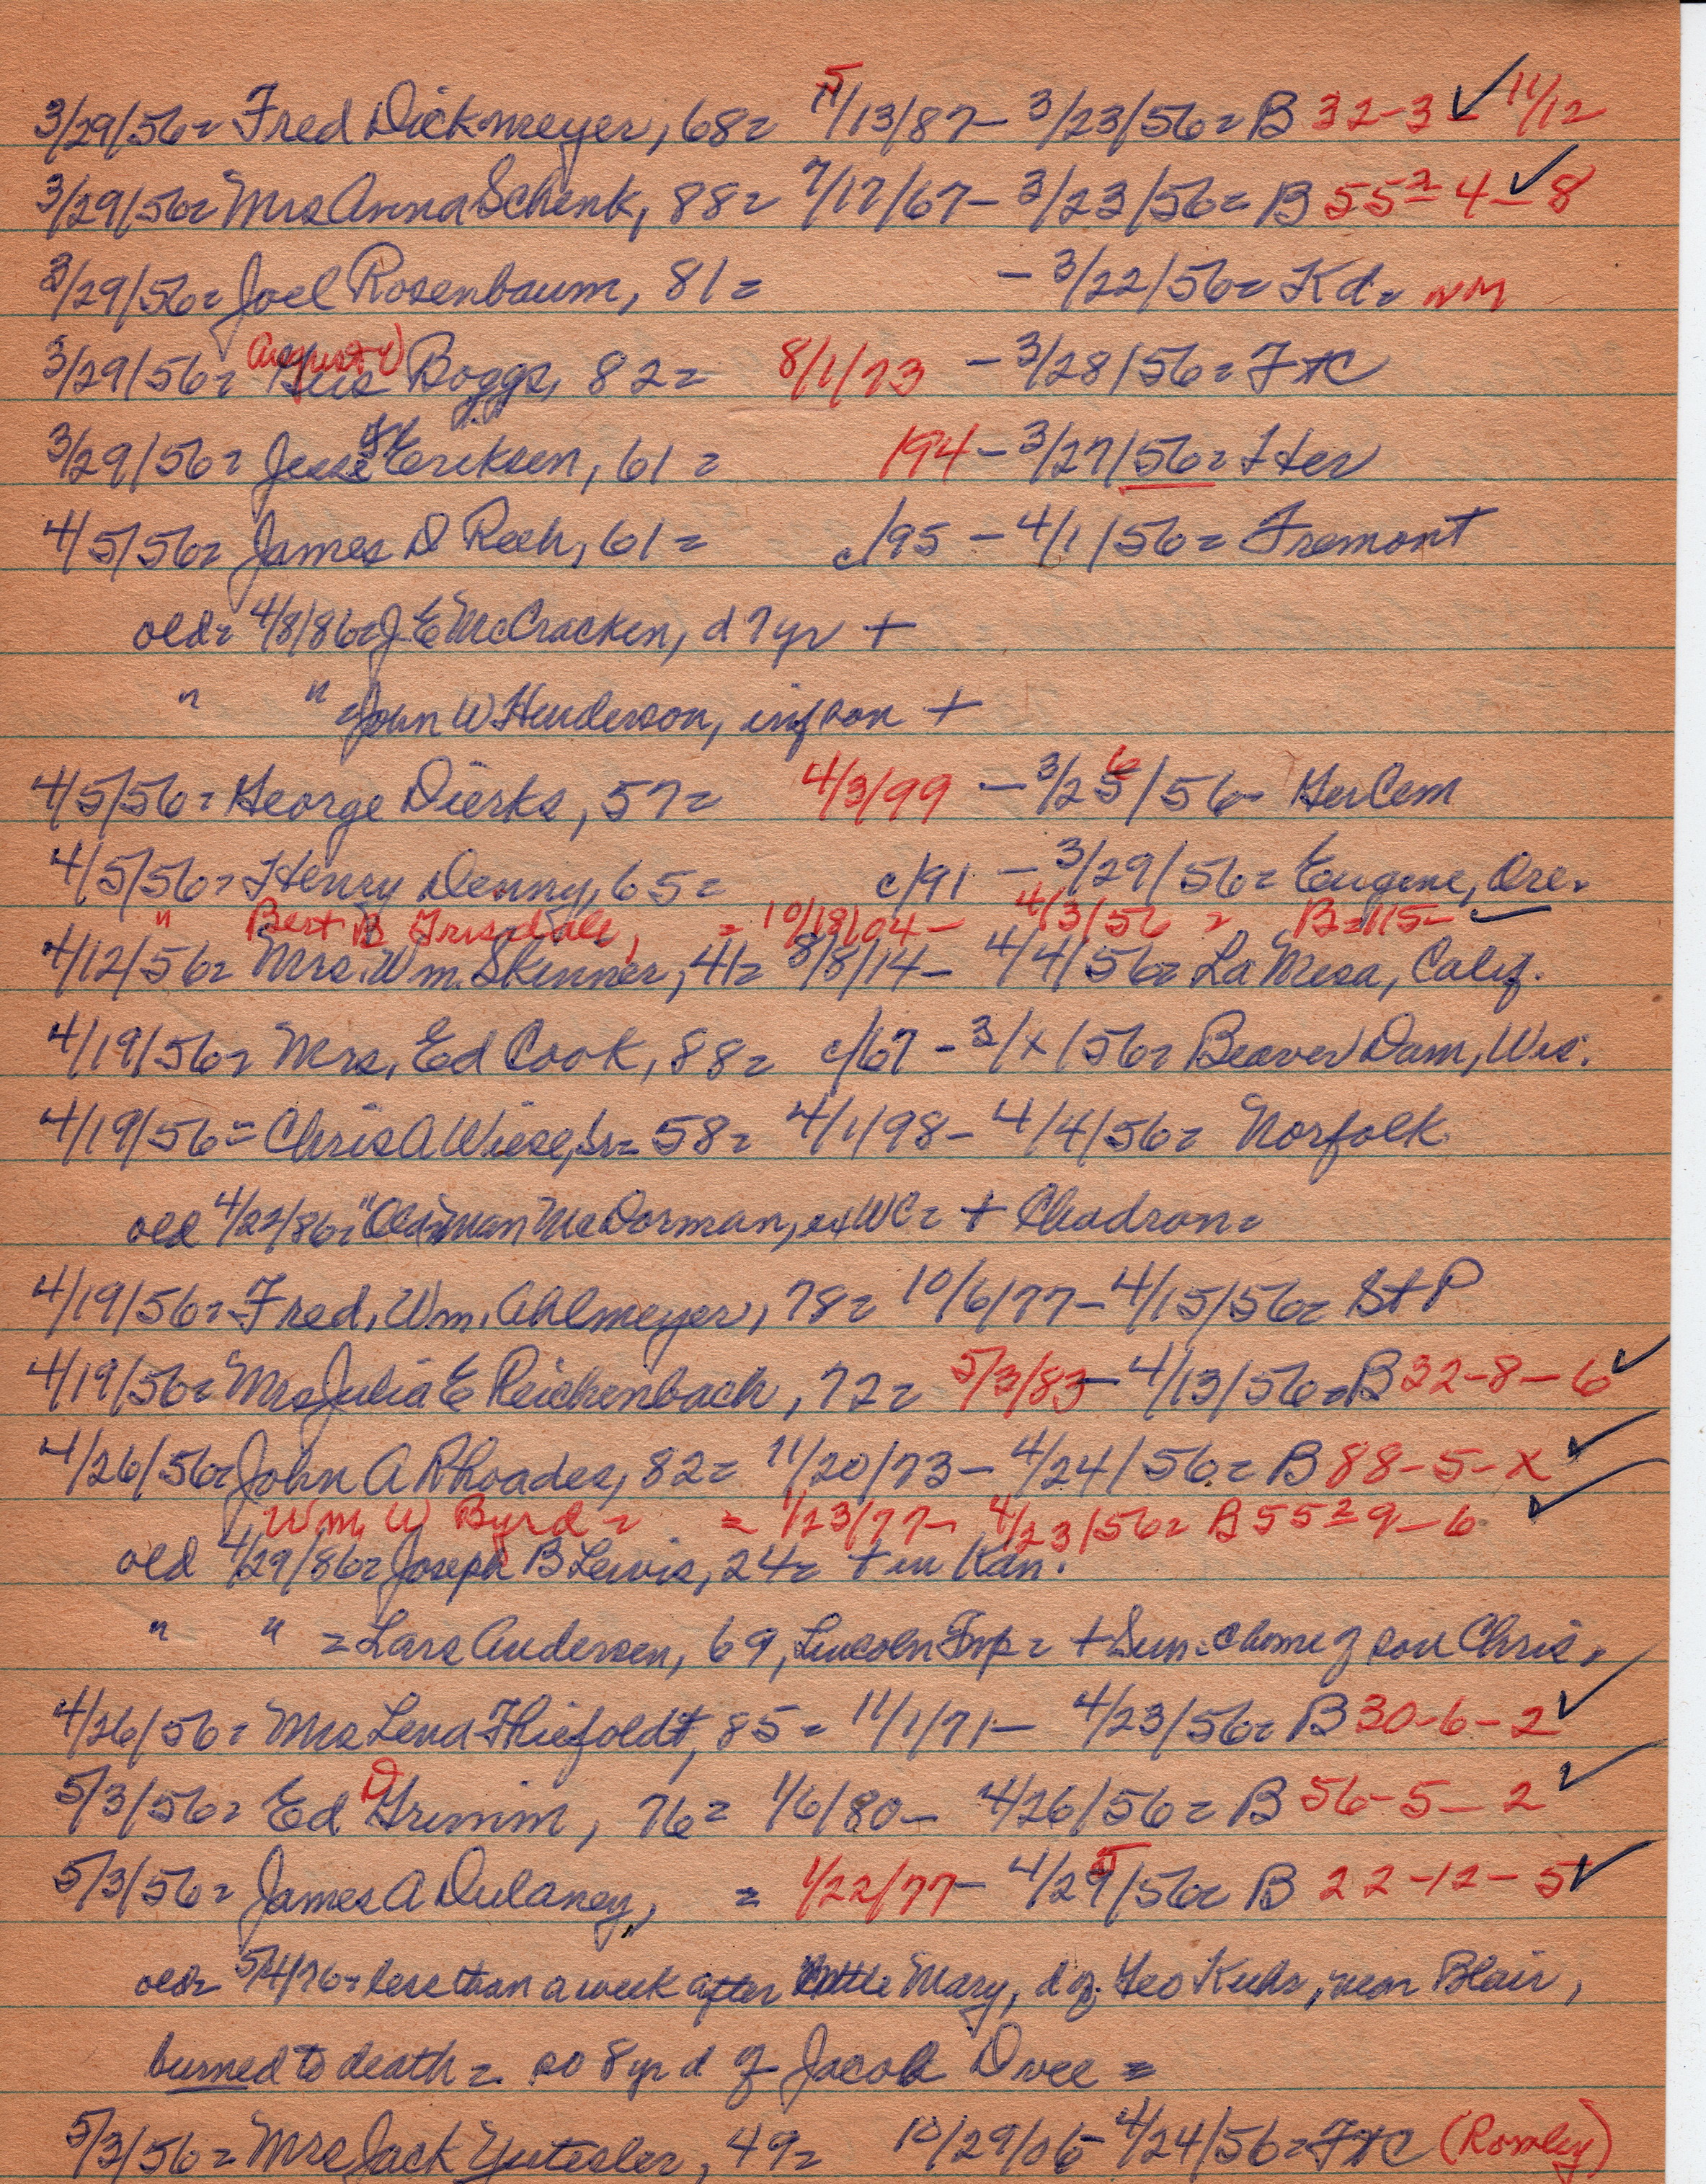 3/29/56= Fred Dickmeyer, 68= 5 11/13/87- 3/23/56= B 32-3- 11/12
3/29/56= Mrs Anna Schenk, 88= 7/17/67- 3/23/56= B 55²-4-8
3/29/56= Joel Rosenbaum, 81= - 3/22/56= Kd= NM
3/29/56= August Gus Boggs, 82= 8/1/73 - 3/28/56= FtC
3/29/56= Jesse Eriksen, 61= 194- 3/27/56= Her
4/5/56= James D Reeh, 61= c/95 - 4/1/56= Fremont
old= 4/8/86= J E McCracken, d 7yr +
" " =John W Henderson, inf son +
4/5/56= George Dierks, 57= 4/3/99 - 3/25 6/56- Her Cem
4/5/56= Henry Denny, 65= c/91 - 3/29/56= Eugene, Ore.
" Bert B Grisdale, = 10/18/04- 4/3/56= B=115-
4/12/56= Mrs. Wm. Skinner, 41= 8/8/14- 4/4/56= La Mesa, Calif.
4/19/56= Mrs. Ed Cook, 88= c/67 - 3/x/56= Beaver Dam, Wis.
4/19/56= Chris A Wiese, Sr= 58= 4/1/98- 4/4/56= Norfolk
old 4/22/86= "Old man McDorman, ex WC= + Chadron=
4/19/56= Fred. Wm. Ahlmeyer, 78= 10/6/77- 4/15/56= St P
4/19/56= Mrs Julia E Reickenback, 72= 5/3/83- 4/13/56= B 32-8-6
4/26/56= John A Rhoades, 82= 11/20/73- 4/24/56= B 88-5-x
Wm. W Byrd= = 1/23/77- 4/23/56= B 55²-9-6
old 4/29/86= Joseph B Lewis, 24= + in Kdn.
" " =Lars Andersen, 69, Lincoln Twp= + Sun. @ home of son Chris.
4/26/56= Mrs Lena Thiefoldt, 85= 11/1/71- 4/23/56= B 30-6-2
5/3/56= Ed D Grimm, 76= 1/6/80- 4/26/56= B 56-5-2
5/3/56= James A Dulaney, = 1/22/77- 4/29 5/56= B 22-12-5
old= 5/4/76= less than a week after little Mary, d of Geo Kuhr, near Blair,
burned to death= so 8 yr d of Jacob =
5/3/56= Mrs Jack Yutesler, 49= 10/29/06- 4/24/56= FtC (Romley)